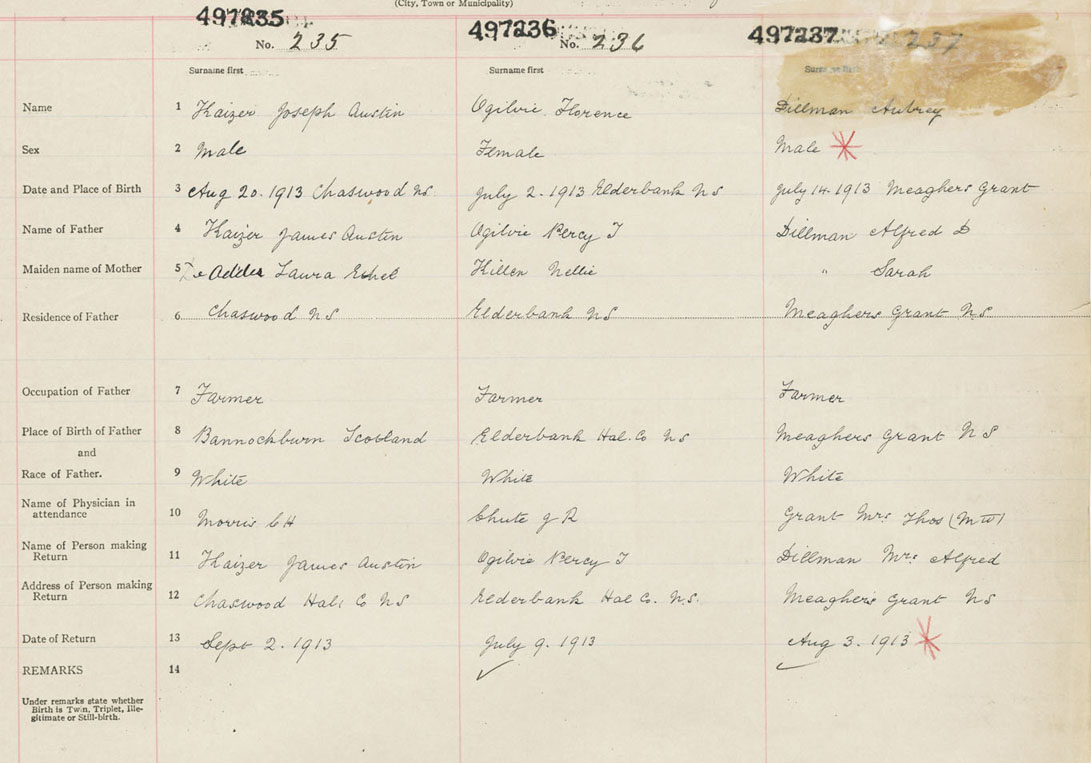 (City, Town or Municipality)
497235 497236 497237
No. 235 No. 236 237
Surname first Surname first Surname first
Name 1 Kaizer Joseph Austin Ogilvie Florence Dillman Aubrey
Sex 2 Male Female Male
Date and Place of Birth 3 Aug 20. 1913 Chaswood NS. July 2 - 1913 Elderbank NS July 14. 1913 Meaghers Grant
Name of Father 4 Kaizer James Austin Ogilvie Percy T Dillman Alfred D
Maiden name of Mother 5 De Adder Laura Ethel Killen Nellie " Sarah
Residence of Father 6 Chaswood NS Elderbank NS Meaghers Grant NS
Occupation of Father 7 Farmer Farmer Farmer
Place of Birth of Father 8 Bannockburn Scotland Elderbank Hal. Co NS Meaghers Grant NS
and
Race of Father. 9 White White White
Name of Physician in
attendance 10 Morris C H Chute J R Grant Mrs Thos (MW)
Name of Person making
Return 11 Kaizer James Austin Ogilvie Percy T Dillman Mrs Alfred
Address of Person making
Return 12 Chaswood Hal. Co NS Elderbank Hal Co. N.S. Meaghers Grant NS
Date of Return 13 Sept 2. 1913 July 9. 1913 Aug 3. 1913
REMARKS 14
Under remarks state whether
Birth is Twin, Triplet, Ille-
gitimate or Still-birth.